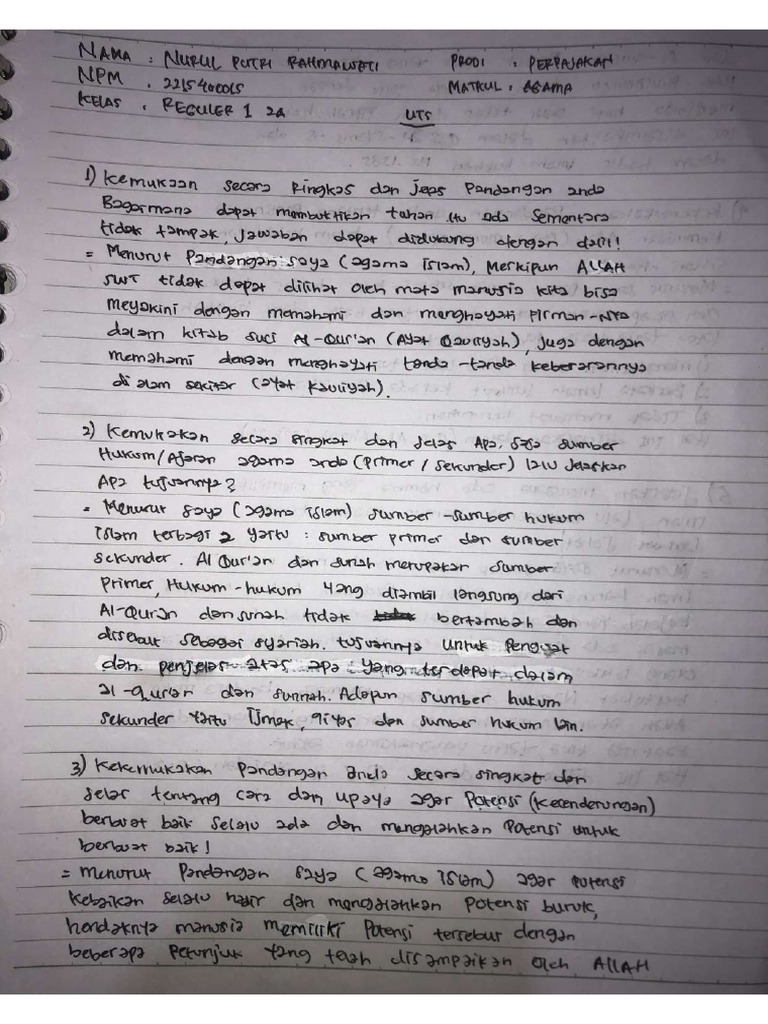 NAMA : NURUL PUTRI RAHMAWATI PRODI : PERPAJAKAN
NPM . 2215400015 MATKUL : AGAMA
KELAS . REGULER 1 2A UTS
1) Kemukaan secara Ringkas dan jeas Pandangan anda
Bagarmana dapat membuktikan tuhan itu ada Sementara
tidak tampak, jawaban dapat didukung dengan dalil!
= Menurut Pandangan saya (agama islam), Meskipun ALLAH
SWT tidak dapat dilihat oleh mata manusia kita bisa
meyakini dengan memahami dan menghayati Firman-Nya
dalam kitab suci Al-Qur'an (Ayat Qauliyah), juga dengan
memahami dengan menghayati tanda-tanda kebesarannya
di alam sekitar (ayat kauliyah).
2) Kemukakan secara singkat dan jelas Apa saja sumber
Hukum/Ajaran agama anda (primer / sekunder) lalu jelaskan
Apa tujuannya?
= Menurut saya (agama islam) sumber-sumber hukum
islam terbagi 2 yaitu : sumber primer dan sumber
sekunder. Al Qur'an dan sunah merupakan sumber
Primer, Hukum-hukum yang diambil langsung dari
Al-Quran dan sunah tidak bertambah dan
disebut sebagai syariah. tujuannya untuk Penguat
dan penjelas atas apa yang terdapat dalam
al-quran dan sunnah. Adapun sumber hukum
sekunder yaitu Ijmak, qiyas dan sumber hukum lain.
3) Kekemukakan Pandangan anda secara singkat dan
selas tentang cara dan upaya agar Potensi (kecenderungan)
berbuat baik selalu ada dan mengalahkan Potensi untuk
berbuat baik!
= menurut Pandangan saya (agama islam) agar potensi
kebaikan selalu hadir dan mengalahkan Potensi buruk,
hendaknya manusia memiliki Potensi tersebut dengan
beberapa Petunjuk yang telah disampaikan oleh ALLAH